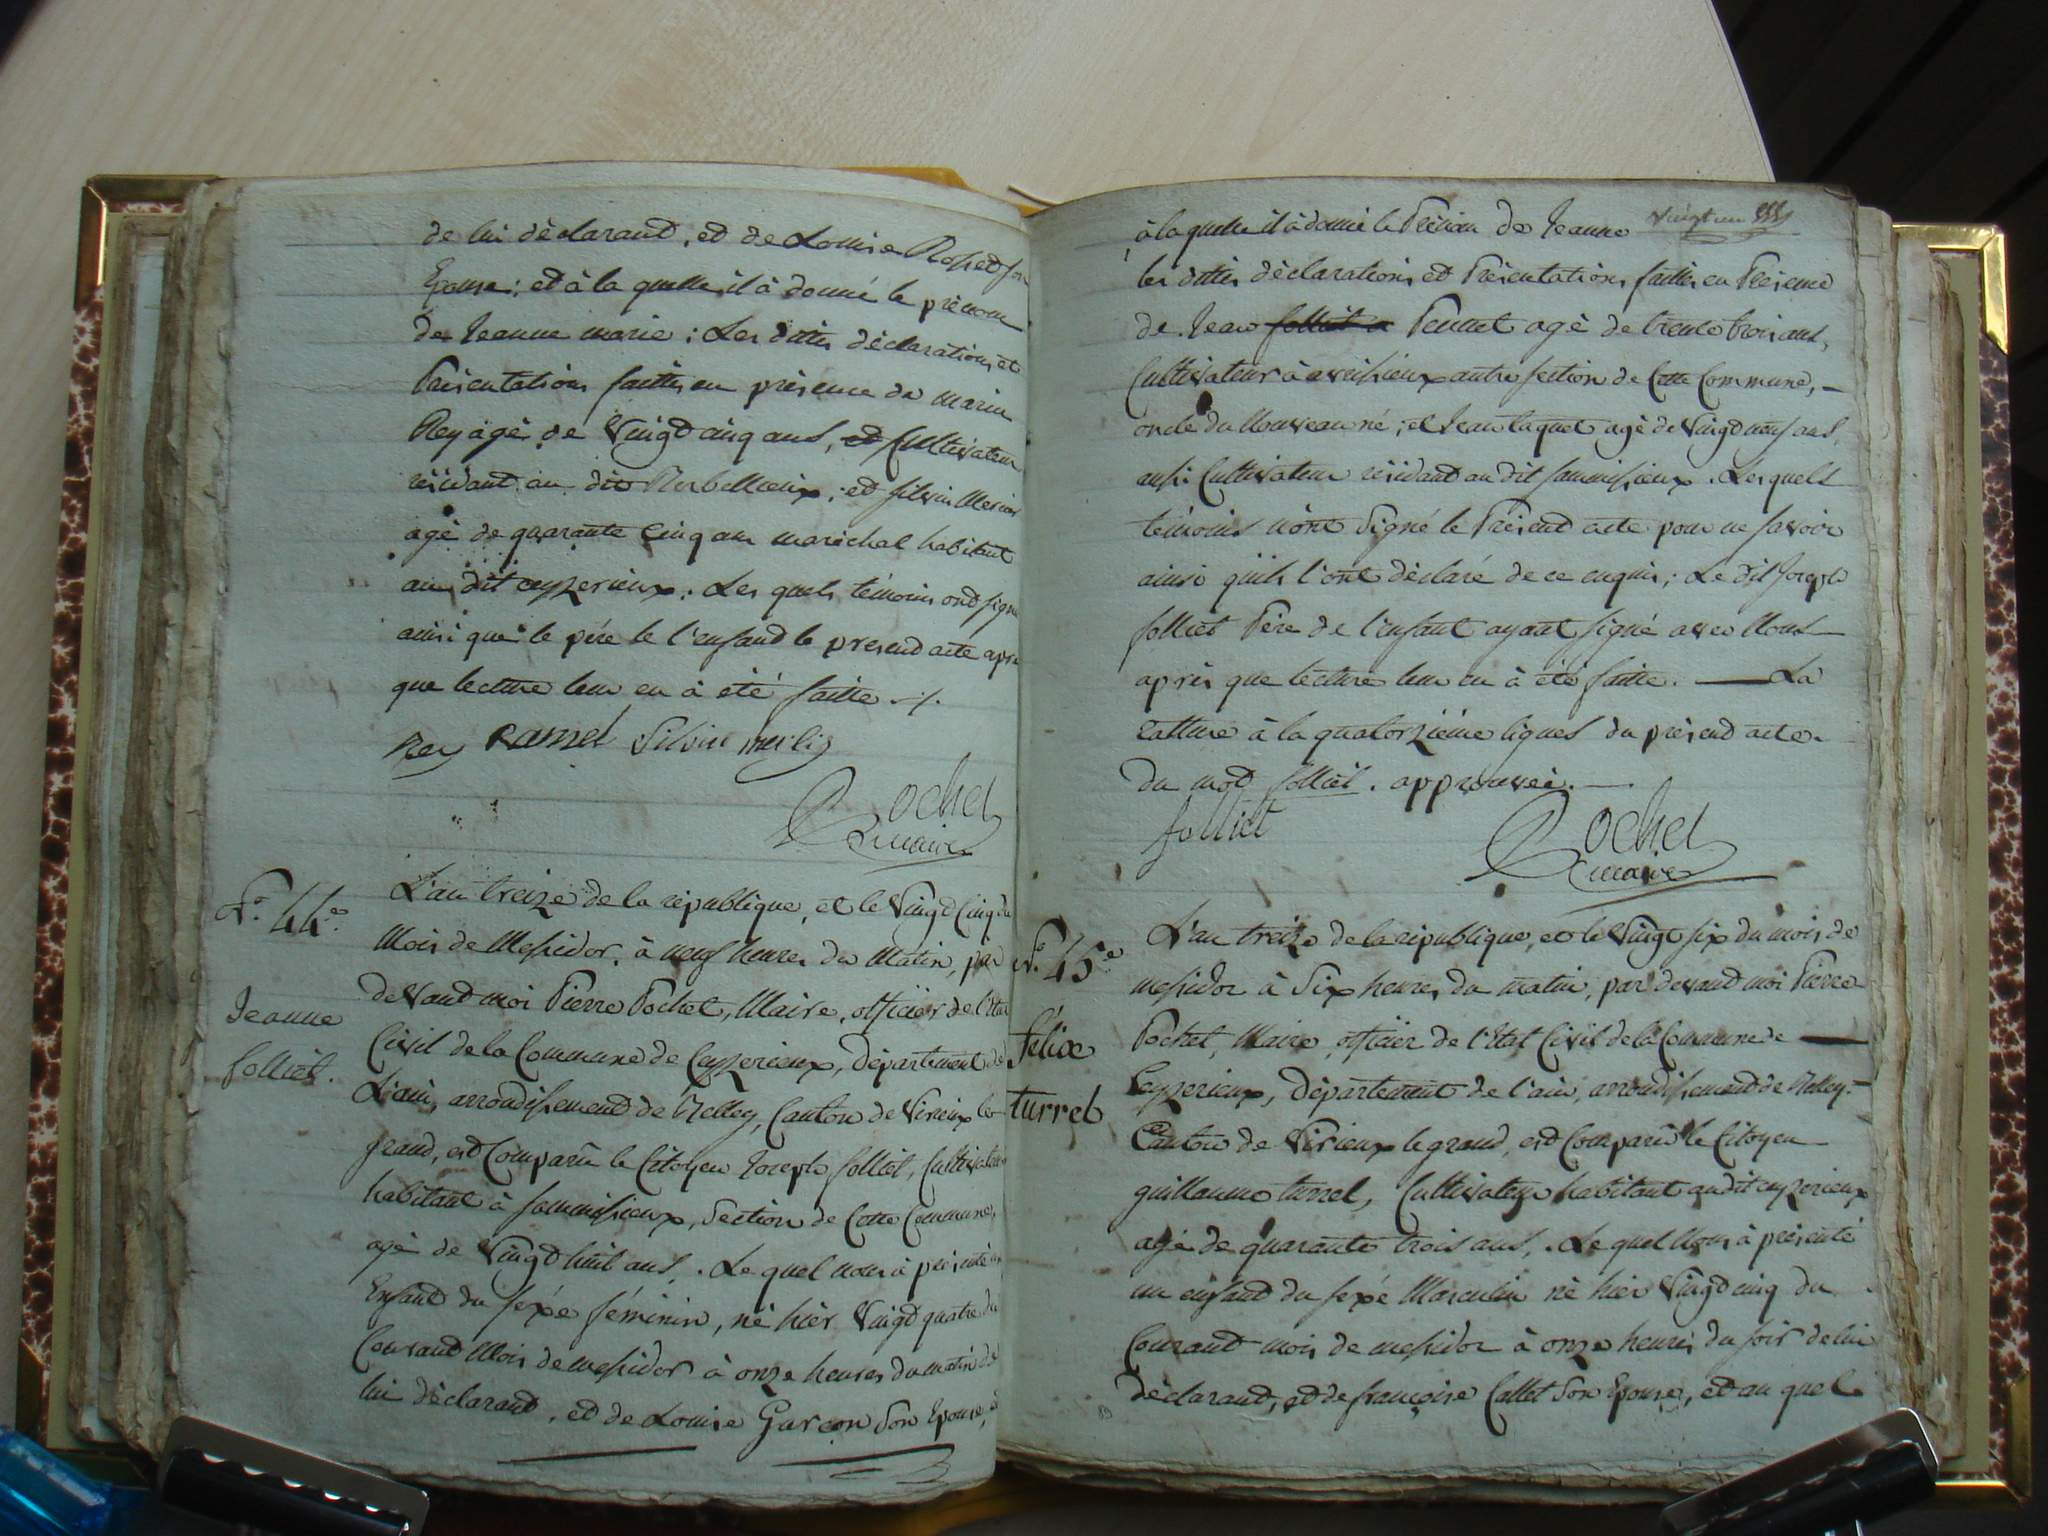 de lui déclarant, et de Louise Rosset son
Epouse; et à la quelle il à donné le prénom
de Jeanne marie; Les dittes déclarations et
Présentations faittes en présence de marin
Rey agé de Vingt cinq ans, et Cultivateur
résidant au dit ; et silvin
agé de quarante Cinq ans maréchal habitant
au dit ceyzerieux; Les quels témoins ont signé
ainsi que le pére de l'enfand le presend acte après
que lecture leur en à été faitte ./.
Rey Ramel Silvin
Pochet
maire
N.° 44.e
Jeanne
folliet.
L'an treize de la république, et le Vingt Cinq du
Mois de Messidor, à neuf heures du Matin, par
devand moi Pierre Pochet, Maire, officier de l'Etat
Civil de la Commune de Ceyzerieux, département de
L'ain, arrondissement de Belley, Canton de Virieux le
grand, est Comparu le Citoyen Joseph folliet, Cultivateur
habitant à sommissieux, Section de Cette Commune,
agé de Vingt huit ans. Le quel nous à présenté un
Enfant du sexée féminin, né hier Vingt quatre du
Courand Mois de messidor à onze heures du matin de
lui déclarant, et de Louise Garçon Son Epouse, et
Vingt un
à la quelle il à donné le Prénom de Jeanne
les dittes déclarations et Présentations faittes en Présence
de Jean folliet a Pennet agé de trente trois ans,
Cultivateur à avrissieux autre section de Cette Commune,
oncle du Nouveau né; et Jean laquet agé de Vingt neuf ans,
aussi Cultivateur résidant au dit sommissieux. Les quels
témoins n'ont Signé le Présent acte pour ne savoir
ainsi qu'ils l'ont déclaré de ce enquis; Le dit Joseph
folliet Père de l'enfant ayant signé avec Nous
après que lecture leur en à été faitte. La
ratture à la quatorzième lignes du présend acte.
du mot folliet. approuvée.
folliet
Pochet
maire
N.° 45.e
félix
turrel
L'an treize de la république, et le Vingt six du mois de
messidor à Six heures du matin, par devand moi Pierre
Pochet, Maire, officier de l'Etat Civil de la Commune de
Ceyzerieux, département de l'ain, arrondissement de Belley,
Canton de Virieux le grand, est Comparû le Citoyen
guillaume turrel, Cultivateur habitant audit ceyzerieux
agé de quarante trois ans. Le quel Nous à présenté
un enfant du sexé Masculin né hier Vingt cinq du
Courand mois de messidor à onze heures du soir de lui
déclarant, et de françoise Callet Son Epouse, et au quel